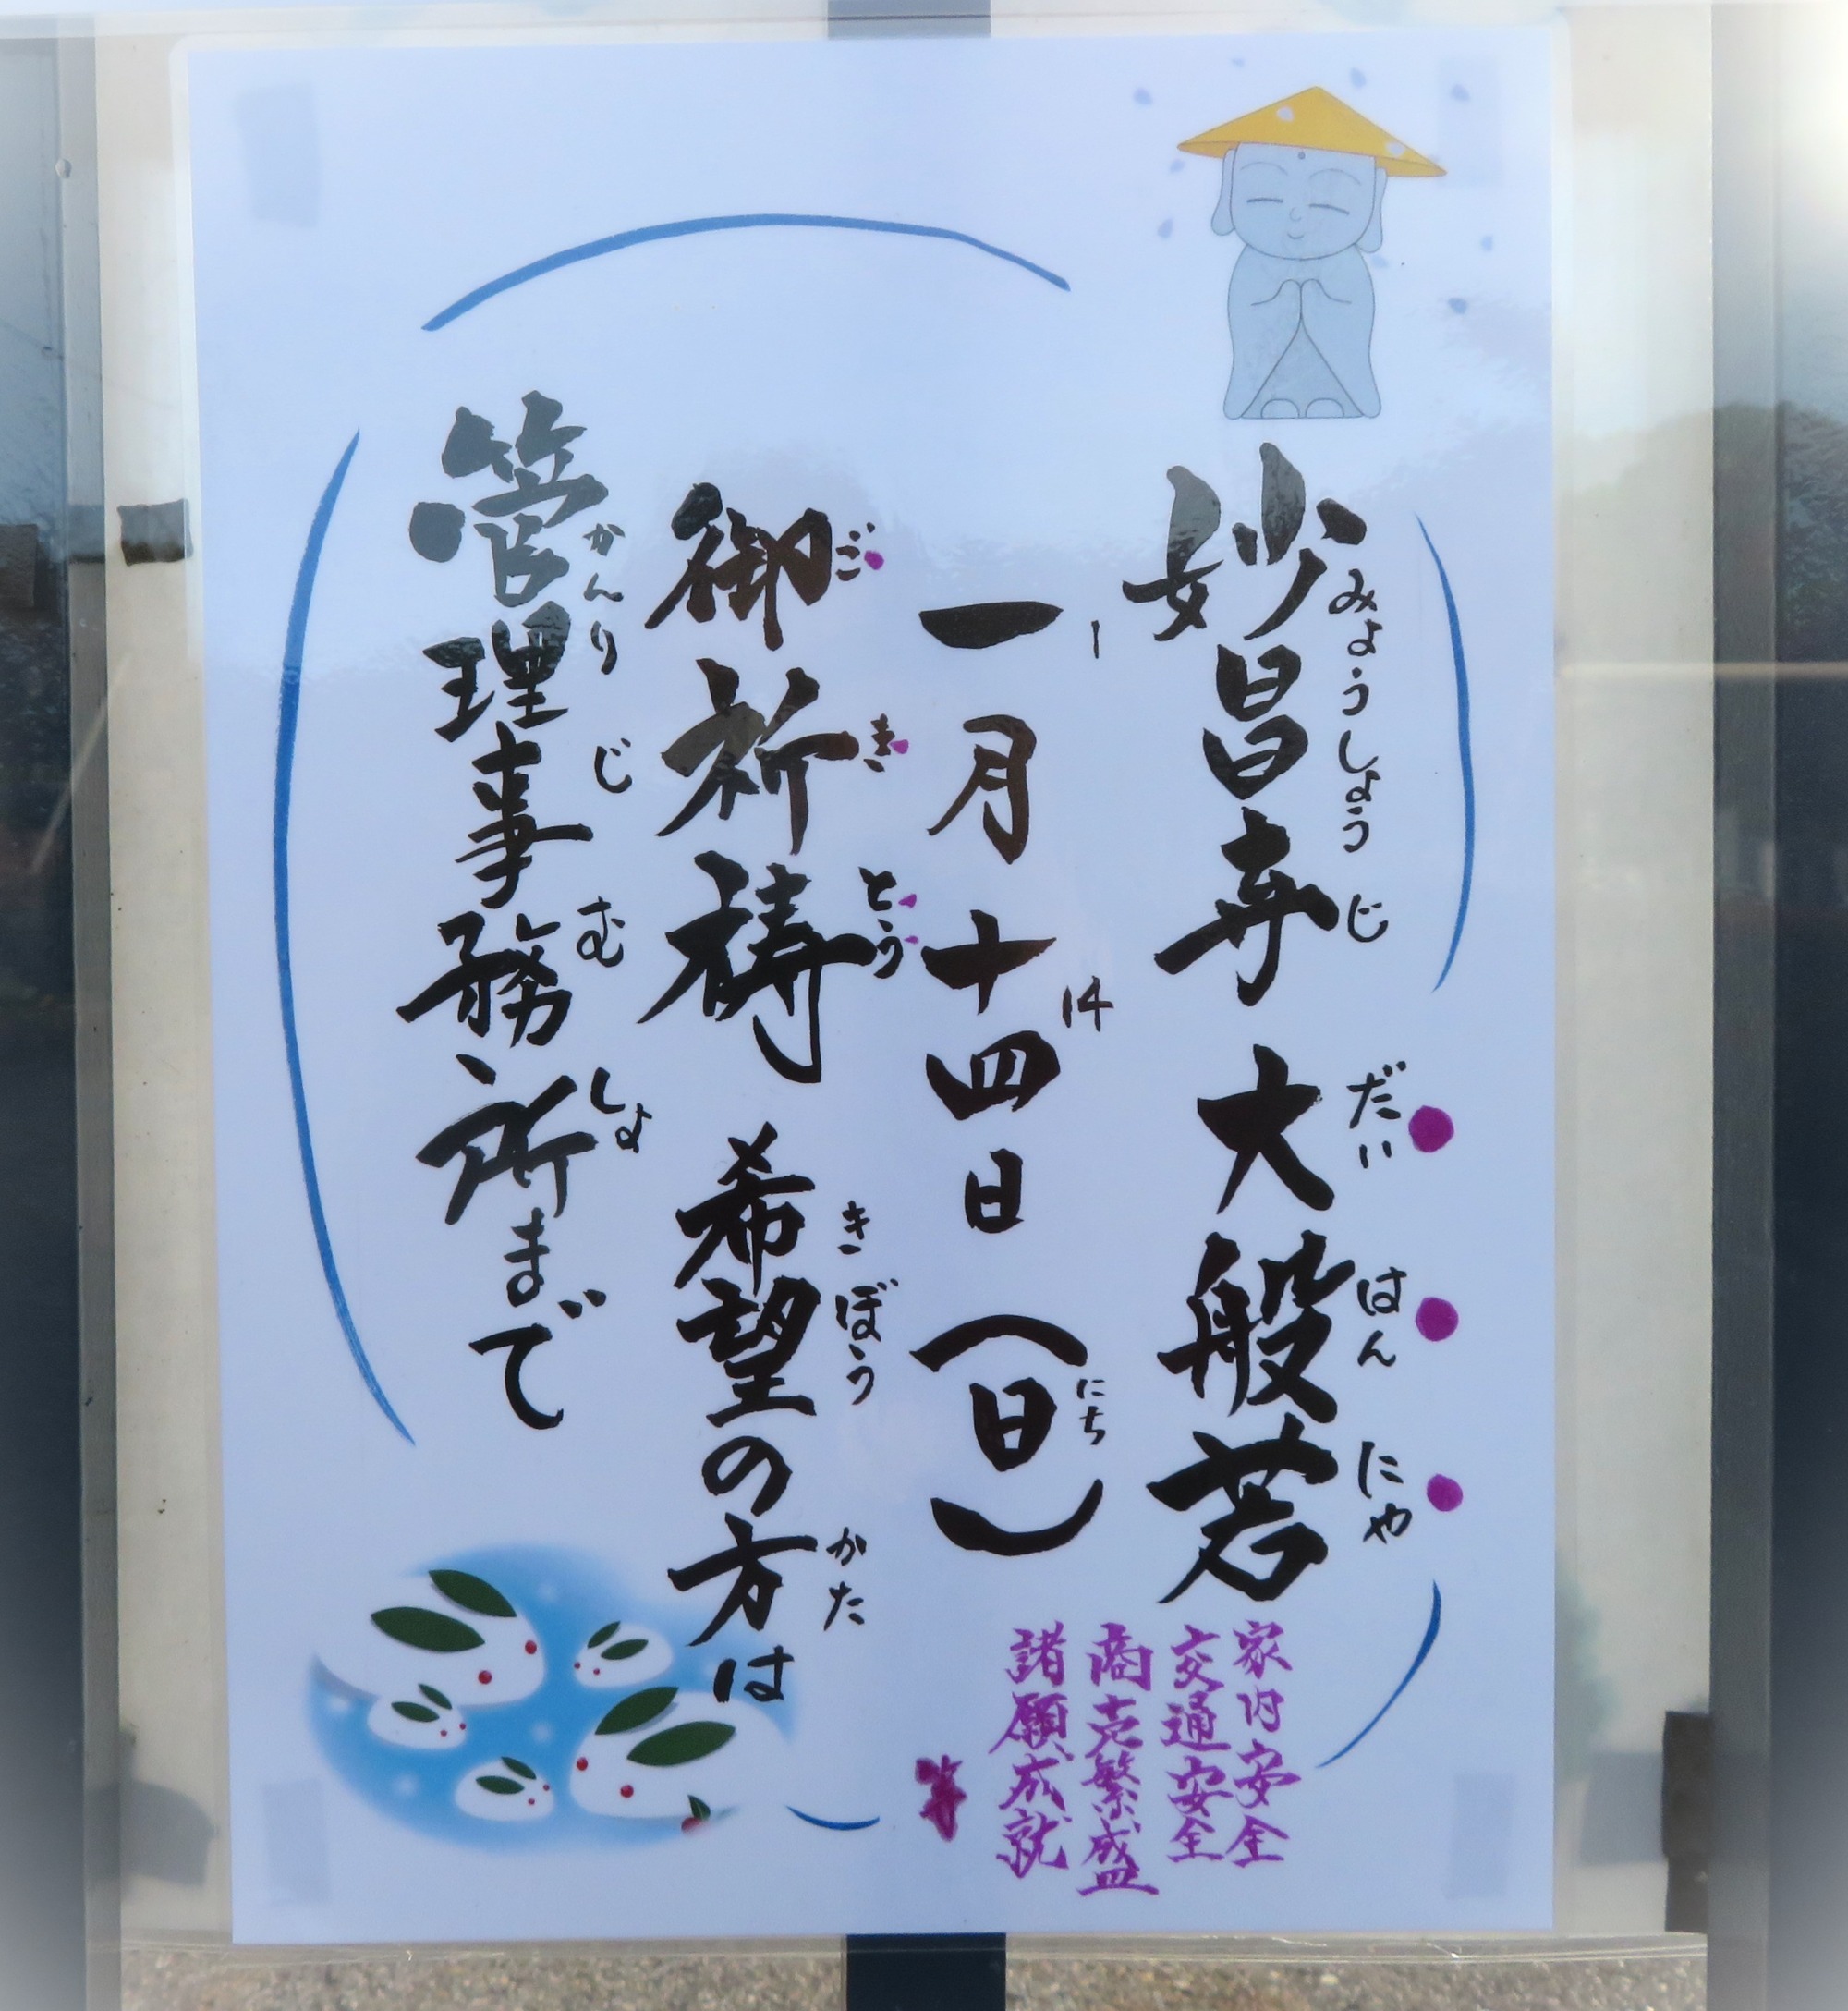 妙昌寺 大般若
みょうしょうじ だい はん にゃ
一月十四日（日）
1 14 にち
御祈祷 希望の方は
ご き とう きぼう かた
管理事務所まで
かんり じ む しょ
家内安全
交通安全
商売繁盛
諸願成就
等